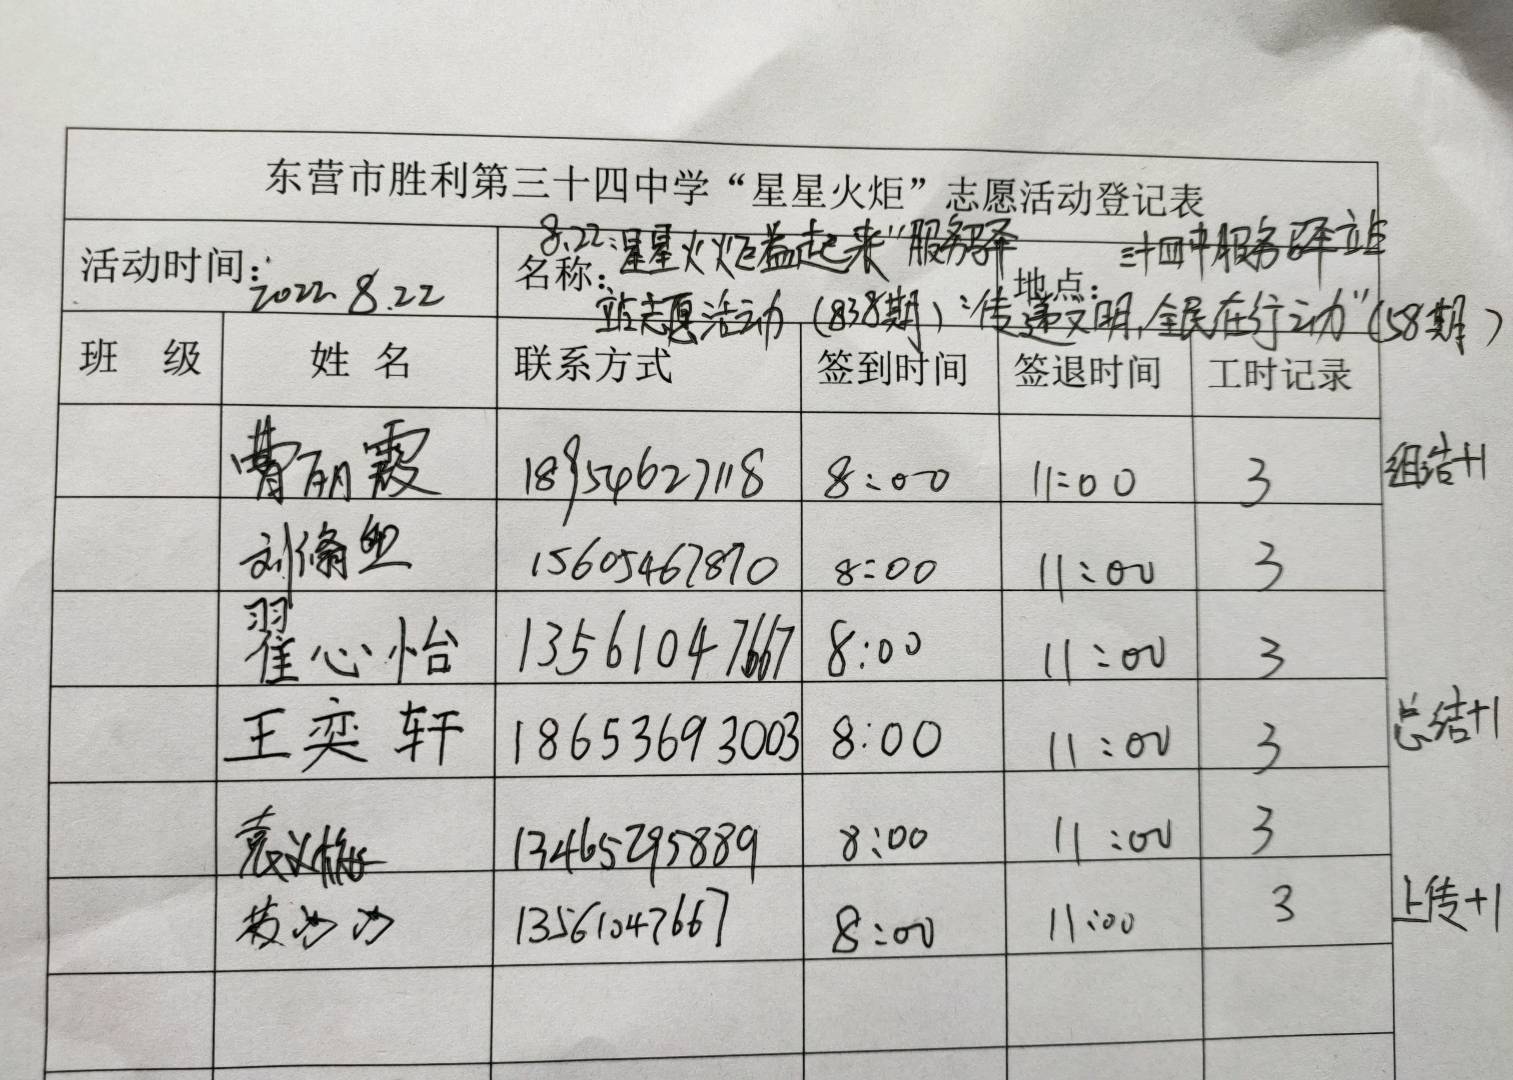 东营市胜利第三十四中学“星星火炬”志愿活动登记表
活动时间：2022.8.22 名称：8.22“星星火炬益起来”服务驿站志愿活动（838期）“传递文明，全民在行动”（58期） 地点：三十四中服务驿站
班 级 姓 名 联系方式 签到时间 签退时间 工时记录
曹丽霞 18954627118 8:00 11:00 3 组织+1
刘 15605467870 8:00 11:00 3
翟心怡 13561047667 8:00 11:00 3
王奕轩 18653693003 8:00 11:00 3 总结+1
袁义梅 13465295889 8:00 11:00 3
黄沙沙 13561047667 8:00 11:00 3 上传+1